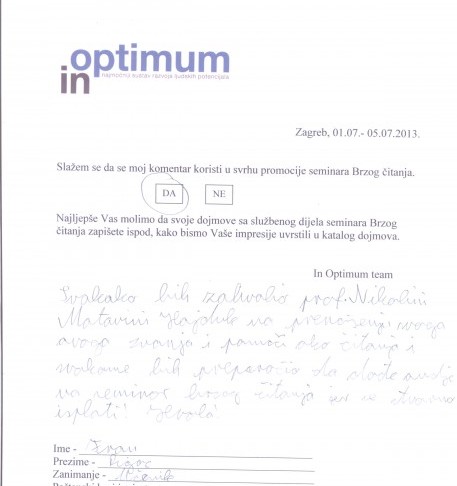 in optimum
najmoćniji sustav razvoja ljudskih potencijala
Zagreb, 01.07.- 05.07.2013.
Slažem se da se moj komentar koristi u svrhu promocije seminara Brzog čitanja.
DA NE
Najljepše Vas molimo da svoje dojmove sa službenog dijela seminara Brzog
čitanja zapišete ispod, kako bismo Vaše impresije uvrstili u katalog dojmova.
In Optimum team
Svakako bih zahvalio prof. Nikolini
na prenošenju svoga
ovoga znanja i pomoći oko čitanja i
svakome bih preporučio da dođe ovdje
na seminar brzog čitanja jer se stvarno
isplati! Hvala!
Ime - Ivan
Prezime -
Zanimanje - Učenik